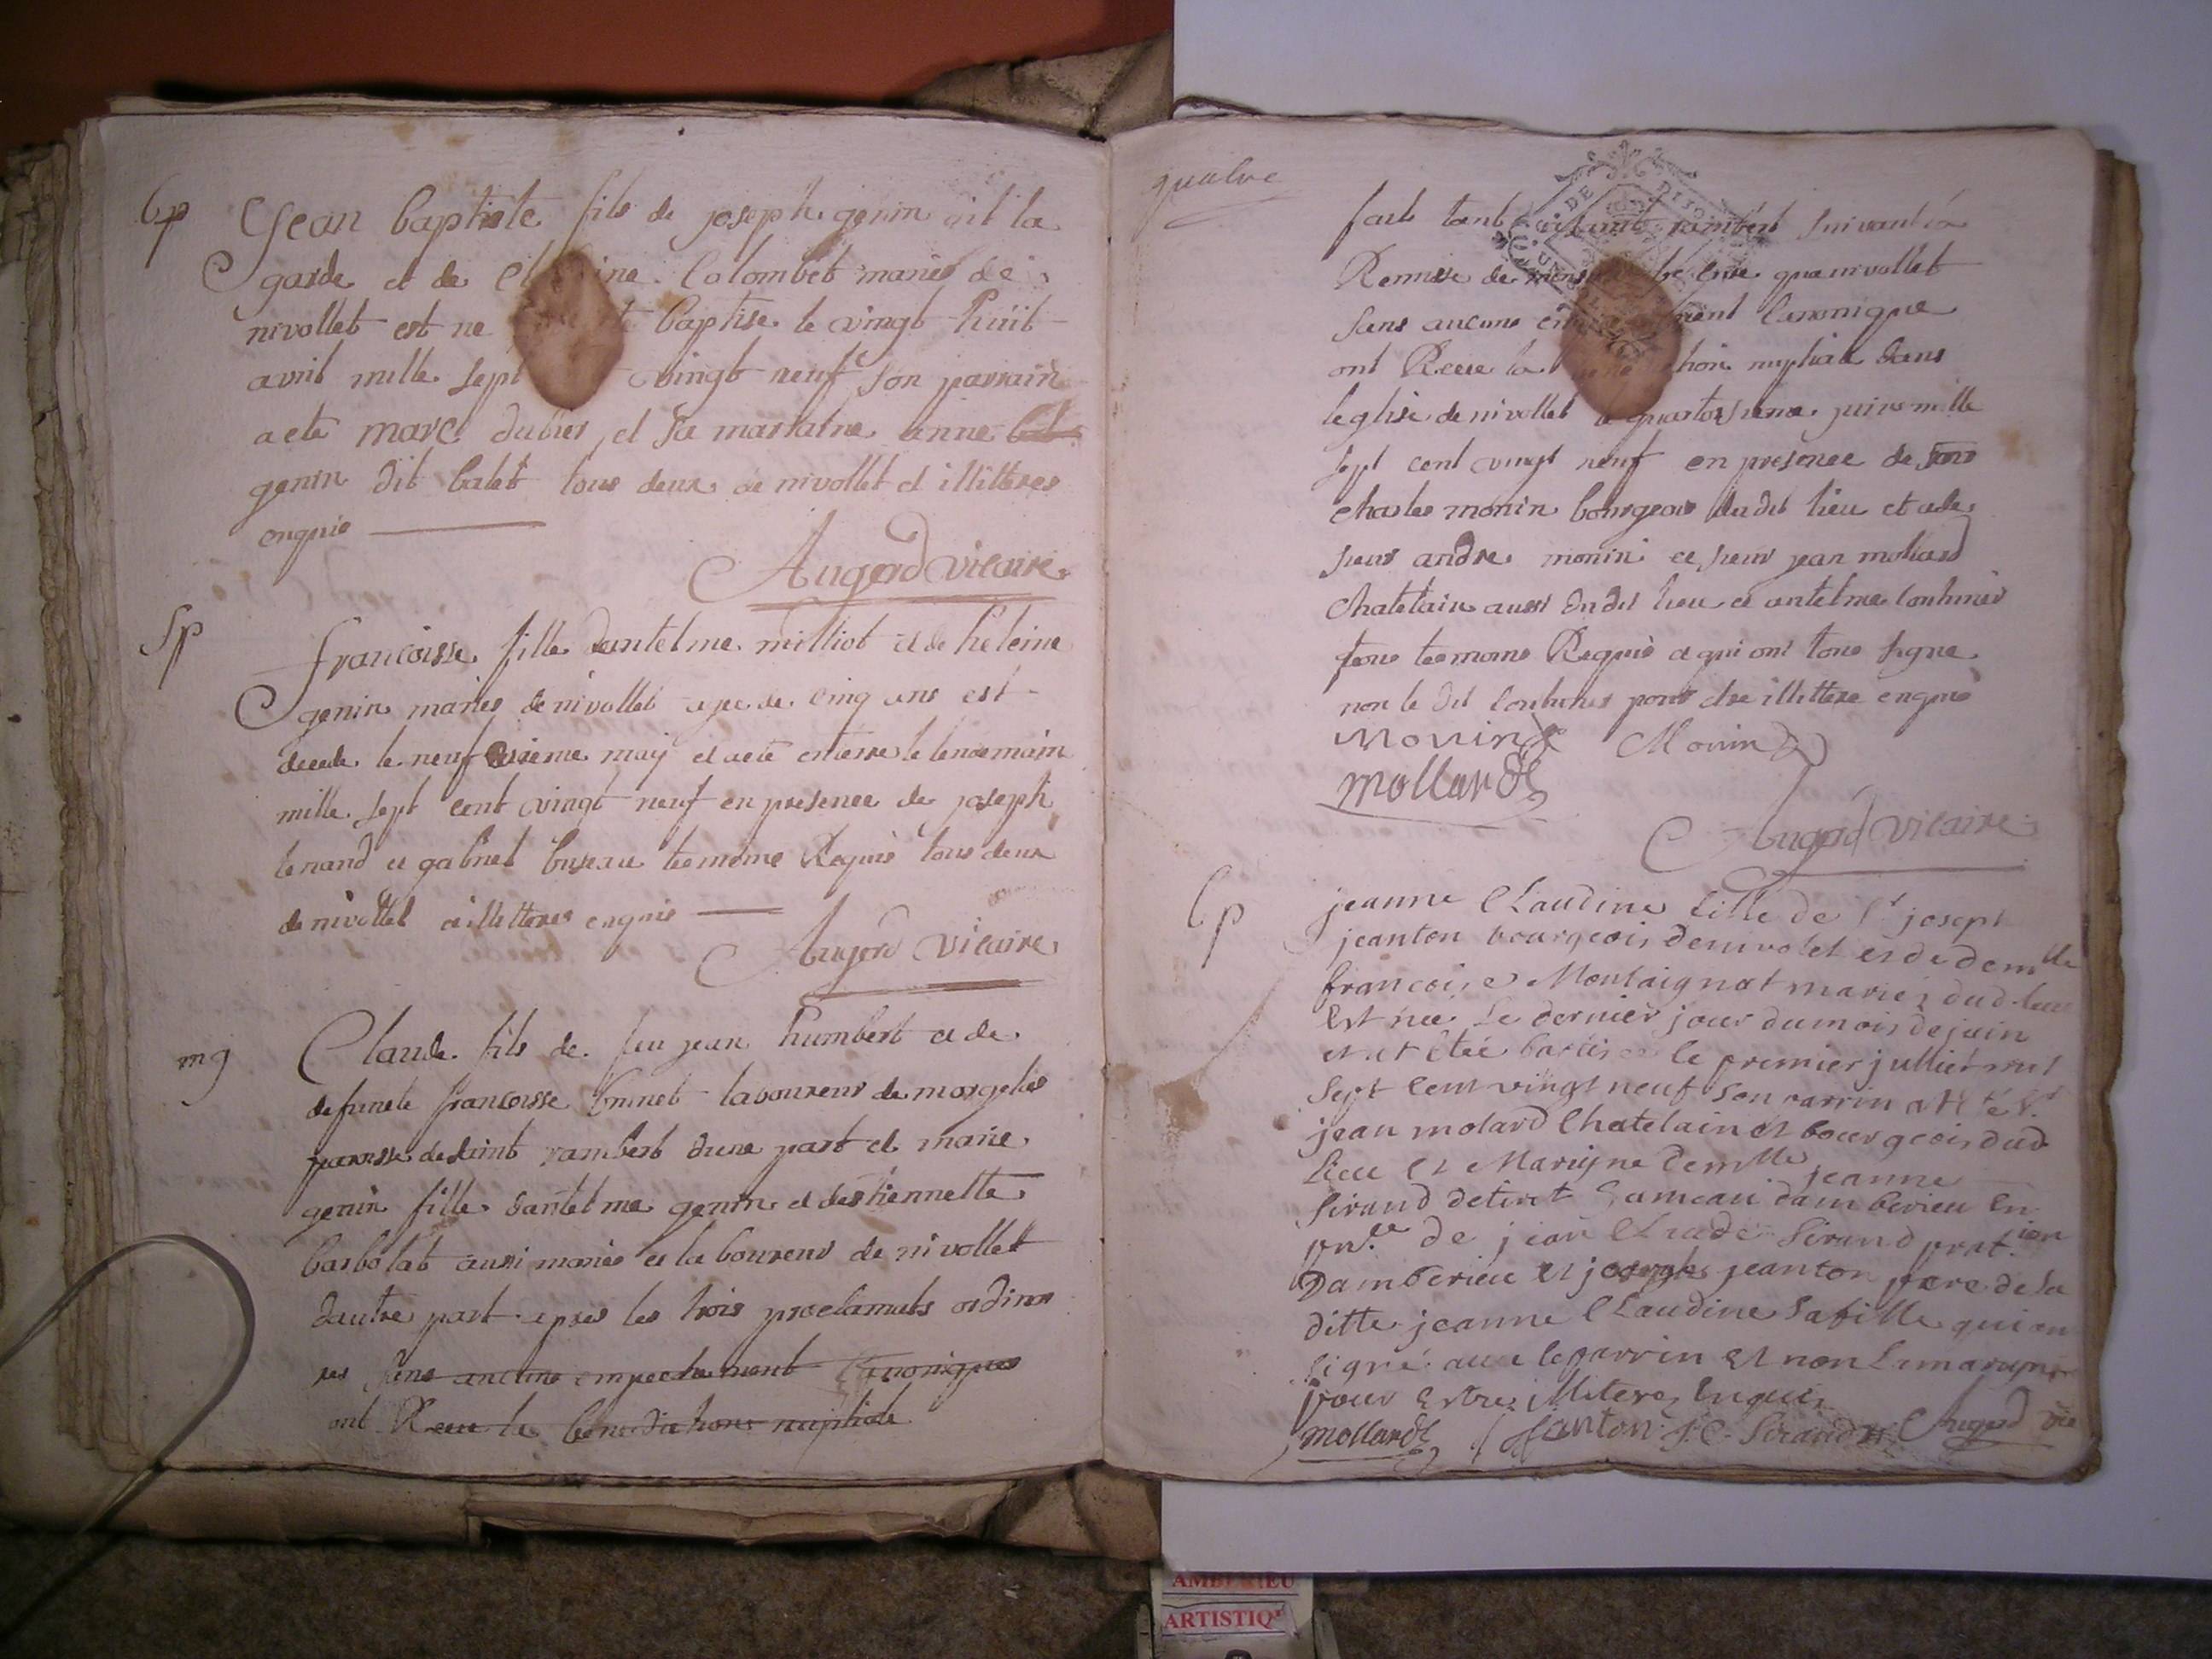 bp
Jean baptiste fils de joseph genin dit la
garde et de ine Colombet mariés de
nivollet est ne baptise le vingt huit
avril mille sept vingt neuf son parrain
a ete marc dubier, et sa marraine anne
genin dit balet tous deux de nivollet et illitteres
enquis
Augerd vicaire
sp
francoisse fille dantelme milliot et de heleine
genin mariés de nivollet agee de cinq ans est
decede le neufvieme may et a ete enterre le lendemain
mille sept cent vingt neuf en presence de joseph
tenand et gabriel buseau tesmoins Requis tous deux
de nivollet et illitteres enquis
Augerd vicaire
mg
Claude fils de feu jean humbert et de
defuncte francoisse brunet laboureurs de morgelas
paroisse de saint rambert dune part et marie
genin fille dantelme genin et destiennette
barbolat aussi mariés et laboureurs de nivollet
dautre part apres les trois proclamats ordinai
res sans aucuns empechement Canonique
ont Receu la benediction nuptiale
quatre
DE DIJON
fait tant a saint rambert suivant la
Remise de cure que nivollet
sans aucuns canonique
ont Receu la nuptiale dans
leglise de nivollet le quatorsieme juin mille
sept cent vingt neuf en presence de
charles monin bourgeois dudit lieu et de
sieur andre monin et sieur jean mollard
chatelain aussi dudit lieu et antelme
tous tesmoins Requis et qui ont tous signe
non le dit pour estre illittere enquis
Monin Monin
mollard
Augerd vicaire
bp
jeanne Claudine fille de Sr joseph
jeanton bourgeois de nivolet et de demlle
francoise Montaignat mariez dud lieu
Est née Le dernier jour du mois de juin
et at Eté baptisee le premier julliet mil
sept cent vingt neuf Son parrin at été Sr
jean molard Chatelain et bourgeois dud
lieu Et Maraine Demlle jeanne
Sirand de tiret hameau damberieu En
pnce de jean Claude Sirand pratien
Damberieu Et joseph jeanton pere de la
ditte jeanne Claudine Sa fille qui on
signé avec le parrin Et non La marayne
pour Estre illiteres Enquis
mollard Janton J. C. Sirand Augerd vic
AMBERIEU
ARTISTIQ